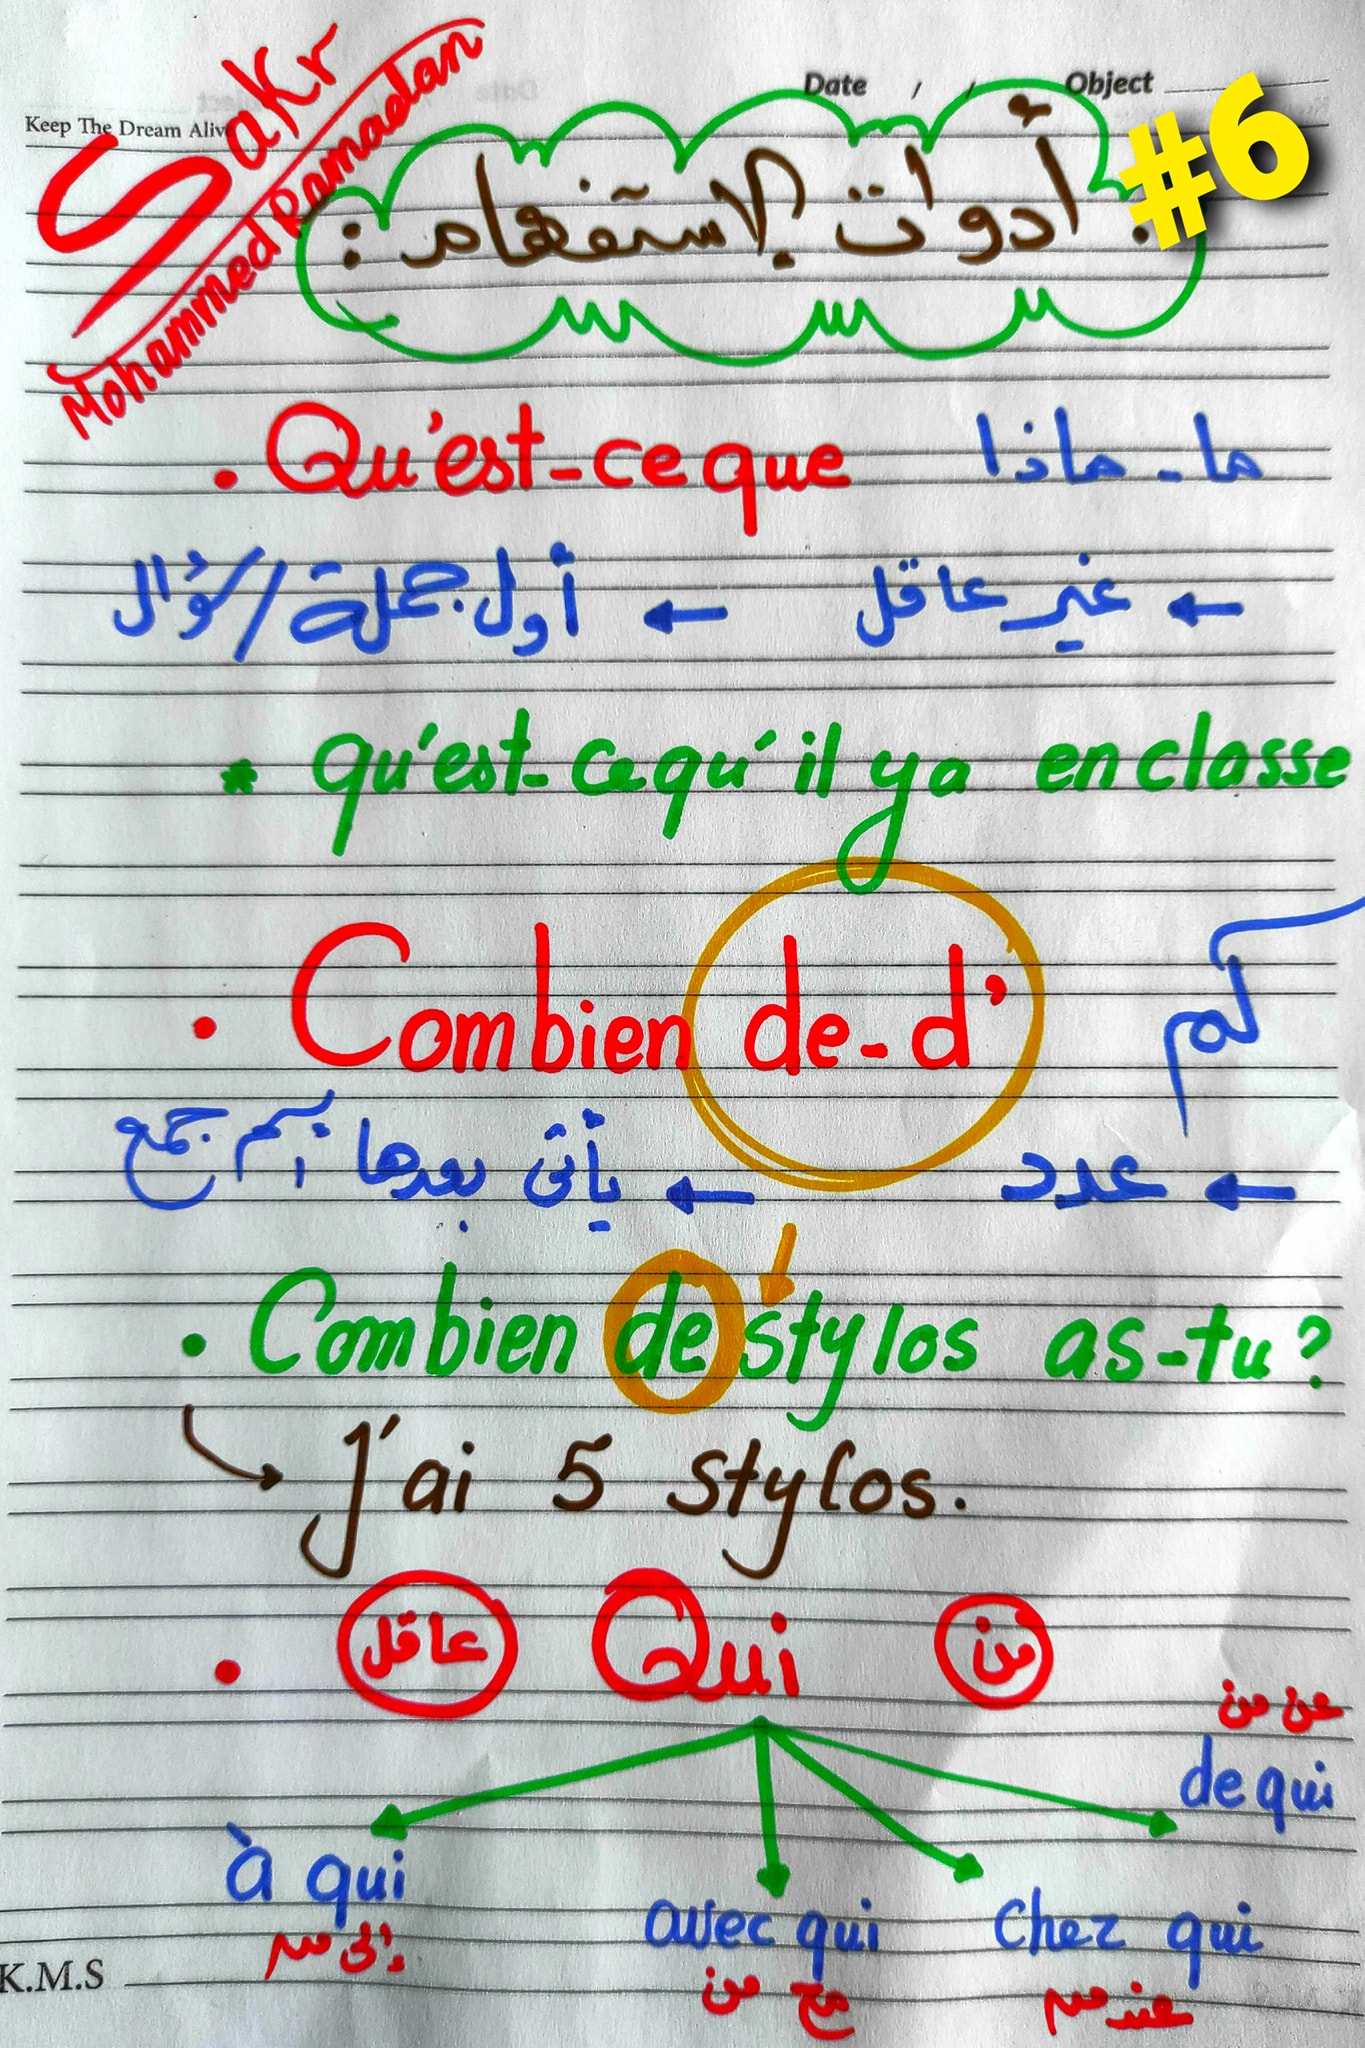 Date / / Object
Keep The Dream Alive
Sakr
Mohammed Ramadan
#6
. أدوات الاستفهام :
• Qu'est-ce que ما - ماذا
← غير عاقل ← أول جملة / سؤال
* qu'est-ce qu'il y a en classe
• Combien de - d' كم
← عدد ← يأتى بعدها اسم جمع
• Combien de stylos as-tu ?
J'ai 5 stylos.
• عاقل Qui من
عن من
de qui
à qui
إلى من
avec qui
مع من
chez qui
عند من
K.M.S